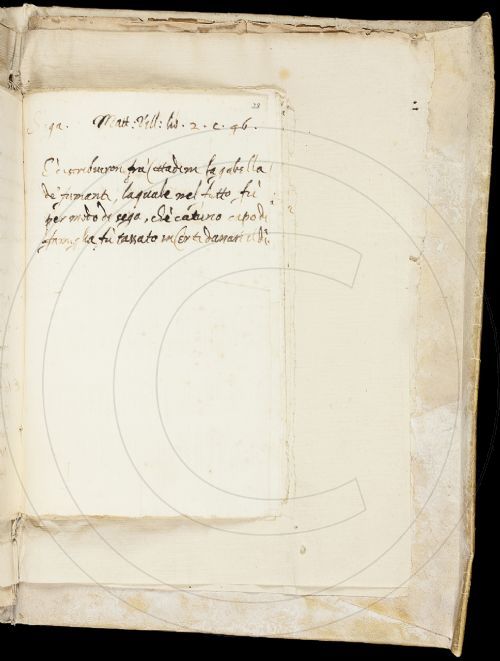 28
Sega. Matt: Vill: lib. 2. c. 46.
E distribuiron frà Cittadini la gabella
de' fumanti, laquale nel fatto fù
per modo di sega, chè catuno capo di
famiglia fù tassato in certi danari il dì.